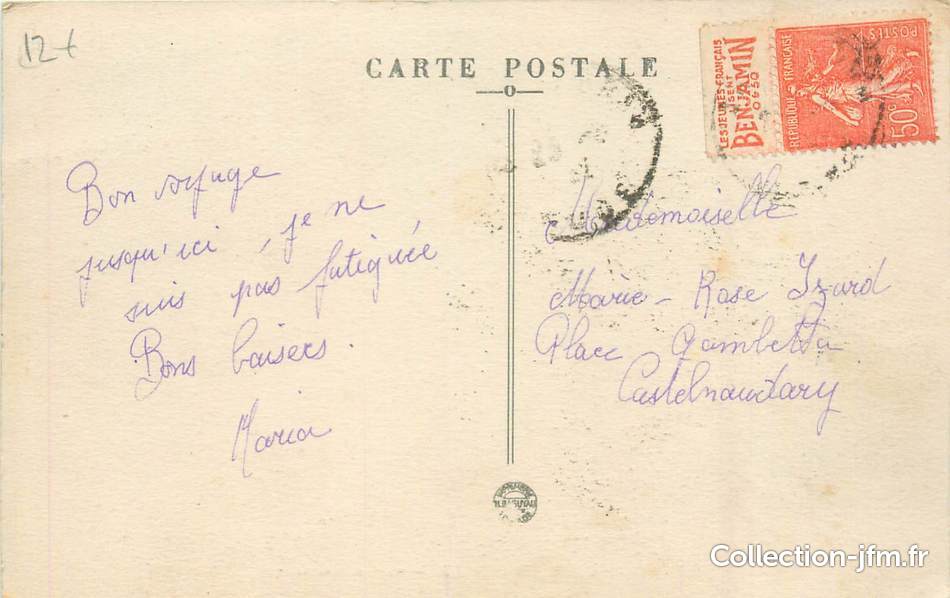 12€
CARTE POSTALE
LES JEUNES FRANÇAIS
LISENT
BENJAMIN
0f50
REPUBLIQUE FRANÇAISE
POSTES
50c
Bon voyage
jusqu'ici, je ne
suis pas fatiguée
Bons baisers.
Maria
Mademoiselle
Marie-Rose Izard
Place Gambetta
Castelnaudary
Collection-jfm.fr